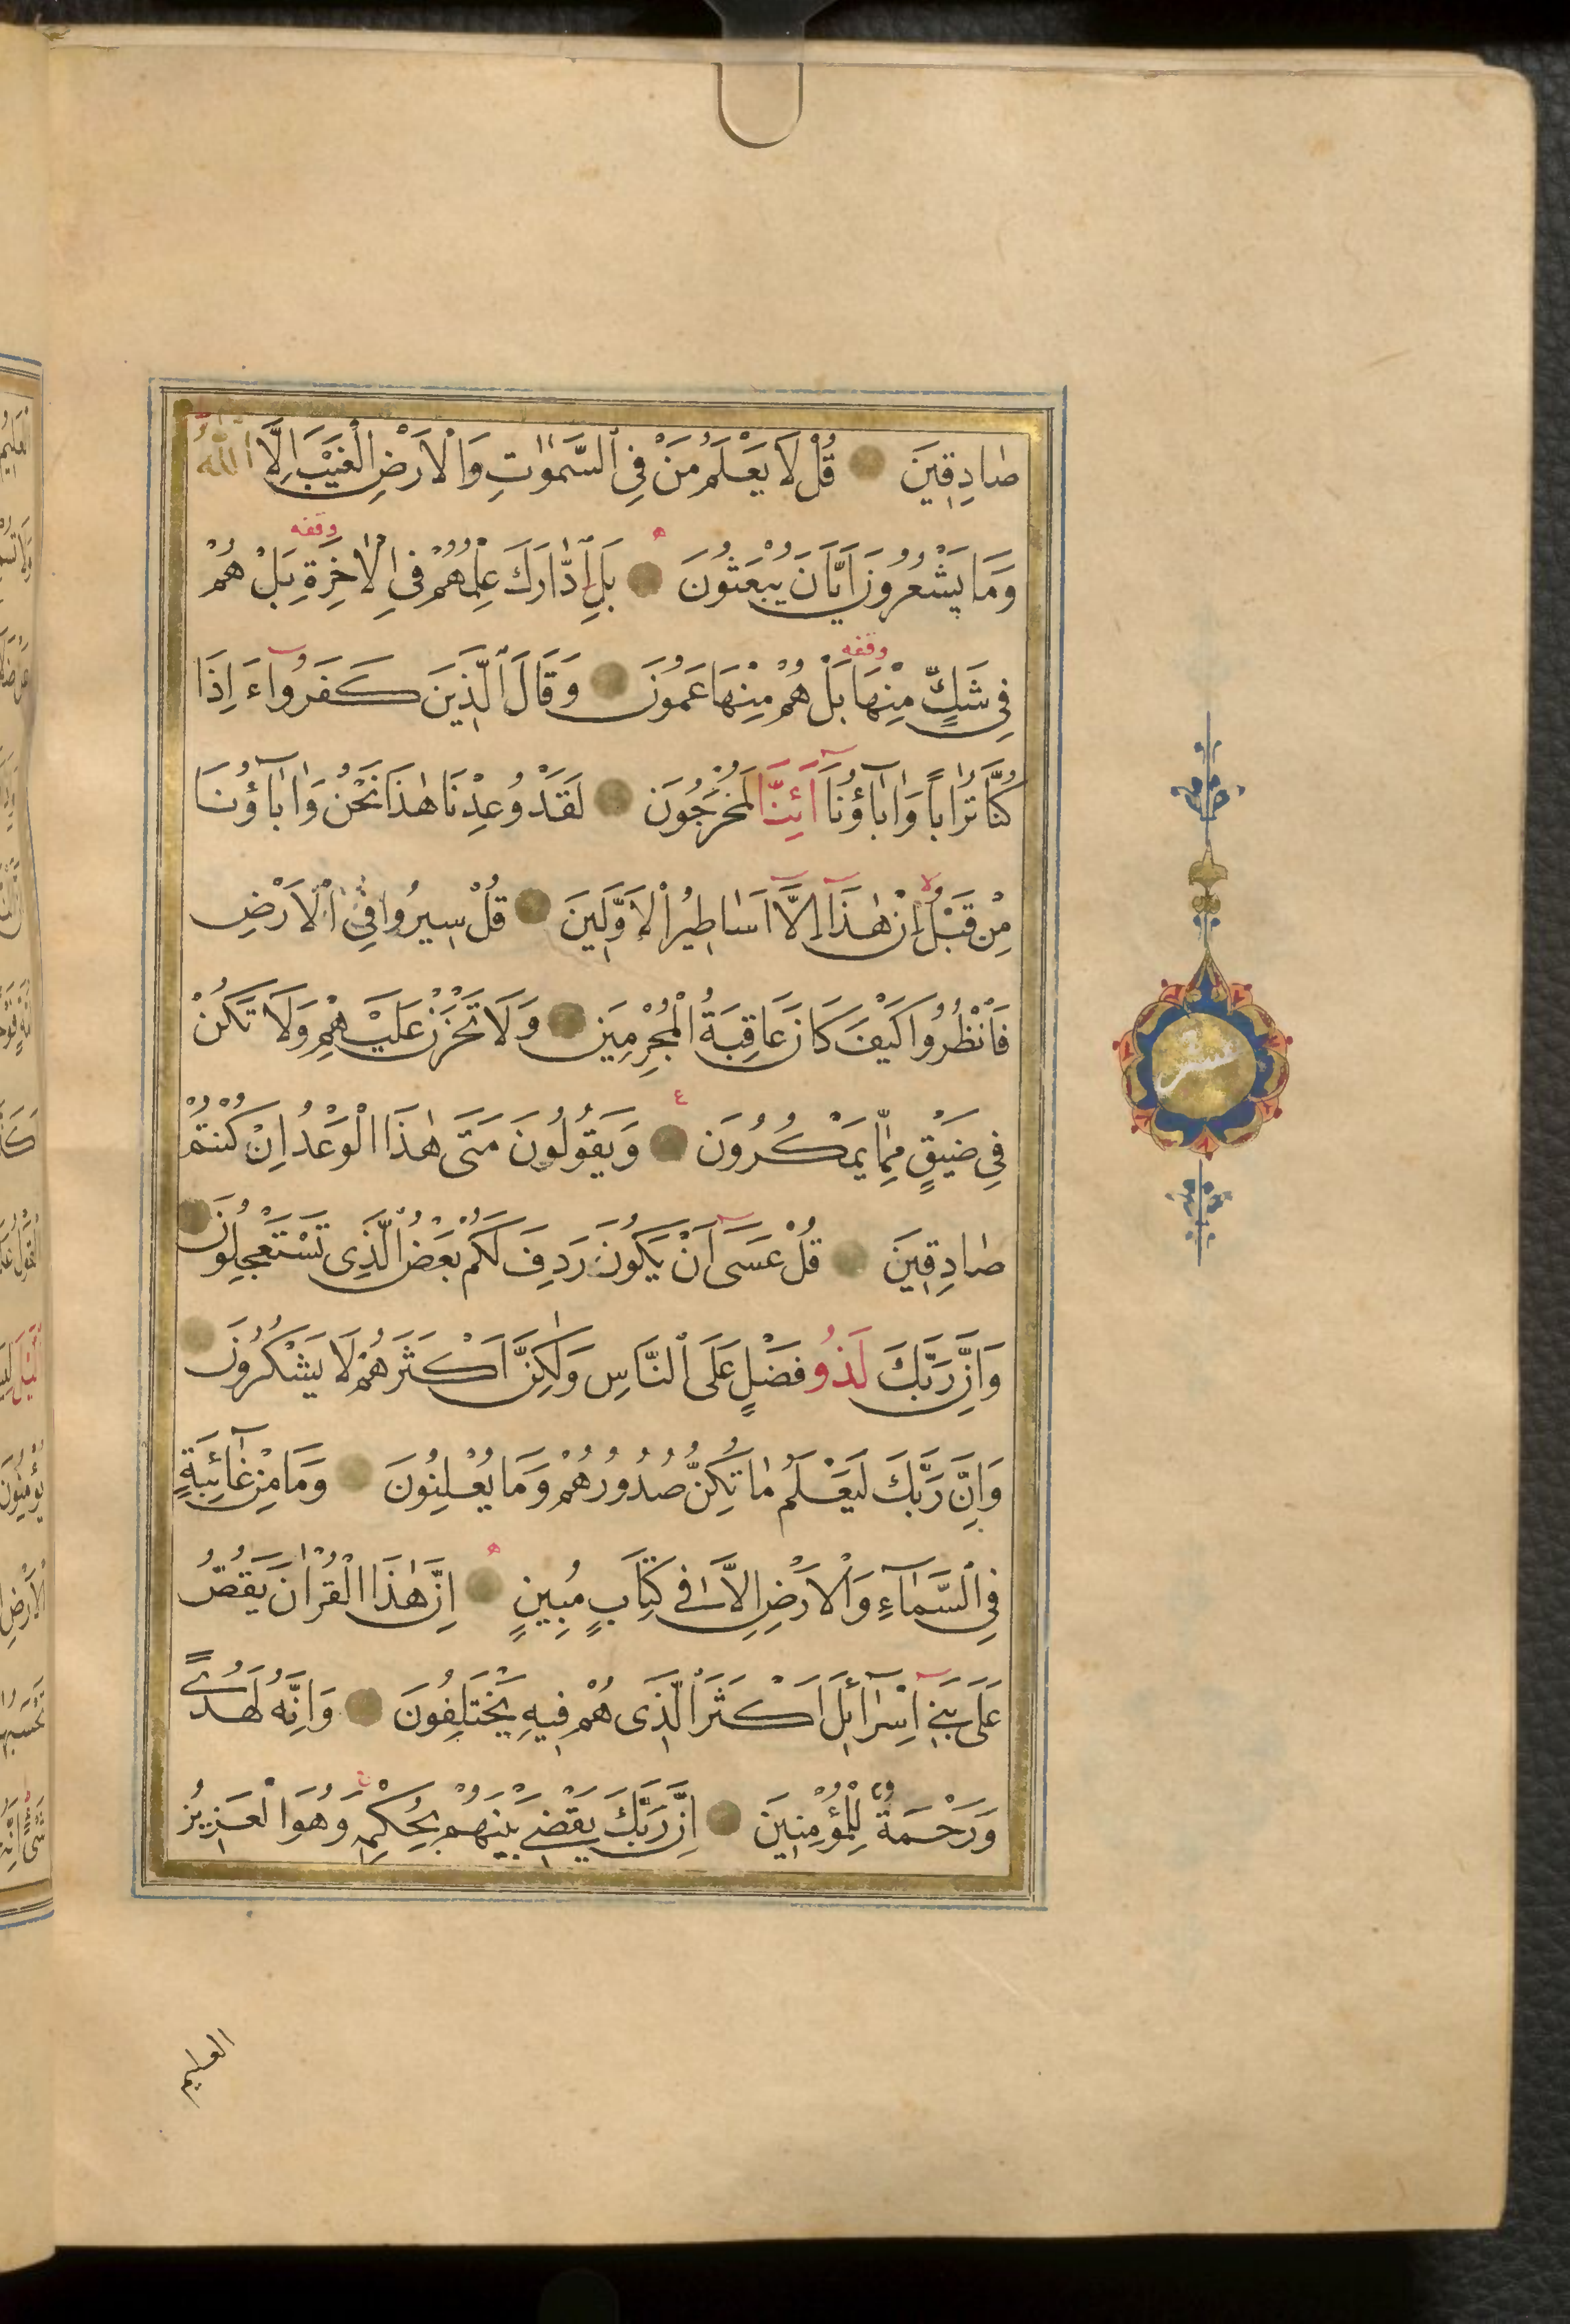 صَادِقِينَ قُلْ لَا يَعْلَمُ مَنْ فِي ٱلسَّمٰوَاتِ وَالْاَرْضِ الْغَيْبَ اِلَّا ٱللّٰهُ
وَمَا يَشْعُرُونَ اَيَّانَ يُبْعَثُونَ ه بَلِ ادَّارَكَ عِلْمُهُمْ فِي الْاٰخِرَةِ وقفه بَلْ هُمْ
فِي شَكٍّ مِنْهَا وقفه بَلْ هُمْ مِنْهَا عَمُونَ وَقَالَ ٱلَّذِينَ كَفَرُوا ءَاِذَا
كُنَّا تُرَاباً وَاٰبَآؤُنَا اَئِنَّا لَمُخْرَجُونَ لَقَدْ وُعِدْنَا هٰذَا نَحْنُ وَاٰبَآؤُنَا
مِنْ قَبْلُ لا اِنْ هٰذَا اِلَّا اَسَاطِيرُ الْاَوَّلِينَ قُلْ سِيرُوا فِي الْاَرْضِ
فَانْظُرُوا كَيْفَ كَانَ عَاقِبَةُ الْمُجْرِمِينَ وَلَا تَحْزَنْ عَلَيْهِمْ وَلَا تَكُنْ
فِي ضَيْقٍ مِمَّا يَمْكُرُونَ ع وَيَقُولُونَ مَتَى هٰذَا الْوَعْدُ اِنْ كُنْتُمْ
صَادِقِينَ قُلْ عَسَى اَنْ يَكُونَ رَدِفَ لَكُمْ بَعْضُ الَّذِي تَسْتَعْجِلُونَ
وَاِنَّ رَبَّكَ لَذُو فَضْلٍ عَلَى ٱلنَّاسِ وَلٰكِنَّ اَكْثَرَهُمْ لَا يَشْكُرُونَ
وَاِنَّ رَبَّكَ لَيَعْلَمُ مَا تُكِنُّ صُدُورُهُمْ وَمَا يُعْلِنُونَ وَمَا مِنْ غَآئِبَةٍ
فِي ٱلسَّمَآءِ وَالْاَرْضِ اِلَّا فِي كِتَابٍ مُبِينٍ ه اِنَّ هٰذَا الْقُرْاٰنَ يَقُصُّ
عَلَى بَنِي اِسْرَآئِلَ اَكْثَرَ الَّذِي هُمْ فِيهِ يَخْتَلِفُونَ وَاِنَّهُ لَهُدًى
وَرَحْمَةٌ لِلْمُؤْمِنِينَ اِنَّ رَبَّكَ يَقْضِي بَيْنَهُمْ بِحُكْمِهِ وَهُوَ الْعَزِيزُ
العليم
عشر